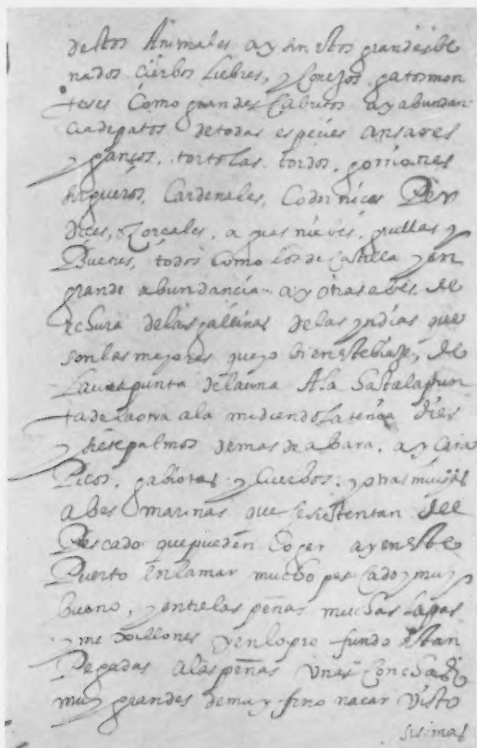 destos Animales ay sin estos grandes be
nados ciérbos Liebres, y Conejos gatos mon
teses Como grandes Cabritos ay abundan
cia de patos de todas espécies ansares
y gansos, tortolas, tordos, gorriones
sirgueros, Cardenales, Codornices Per
dices, Zorçales, agusanieves, grullas y
Bueitres, todos Como los de Castilla y en
grande abundancia ay otras abes de
echura de las gallinas de las yndias que
son las mayores que yo bi en este biage, de
La una punta de la una Ala hasta la pun
ta de la otra ala midiendola tenia diez
y siete palmos de mas de a bara, ay
Picos, gabiotas y Cuerbos, y otras muchas
abes marinas que se sustentan del
Pescado que puedén Coger ay en este
Puerto En la mar mucho pescado y muy
bueno, y entre las peñas muchas lapas
y mexillones y en lo profundo están
Pegadas a las peñas unas Conchas
muy grandes de muy fino nacar visto
sisimas